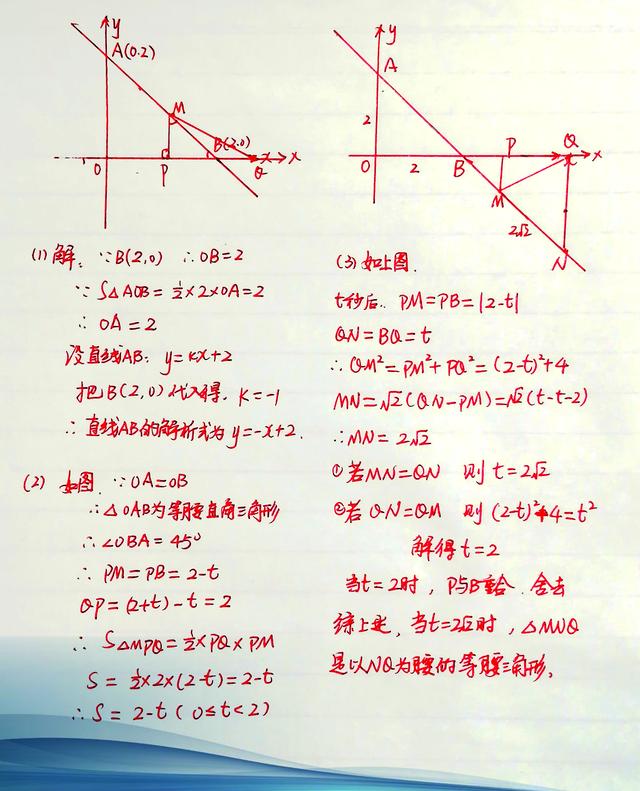 y
A(0.2)
M
B(2,0)
x
0
P
Q
y
A
2
P
Q
0
2
B
x
M
2√2
N
(1) 解: ∵B(2,0) ∴OB=2
∵ S△AOB=½×2×OA=2
∴ OA=2
设直线AB: y=kx+2
把B(2,0)代入得, K=-1
∴直线AB的解析式为y=-x+2.
(2) 如图 ∵OA=OB
∴△OAB为等腰直角三角形
∴∠OBA=45°
∴ PM=PB=2-t
QP=(2+t)-t=2
∴ S△MPQ=½×PQ×PM
S=½×2×(2-t)=2-t
∴S=2-t(0≤t<2)
(3)如上图.
t秒后. PM=PB=|2-t|
QN=BQ=t
∴QM²=PM²+PQ²=(2-t)²+4
MN=√2(QN-PM)=√2(t-t-2)
∴MN=2√2
①若MN=QN 则t=2√2
②若QN=QM 则(2-t)²+4=t²
解得t=2
当t=2时,P与B重合.舍去
综上述,当t=2√2时,△MNQ
是以NQ为腰的等腰三角形.